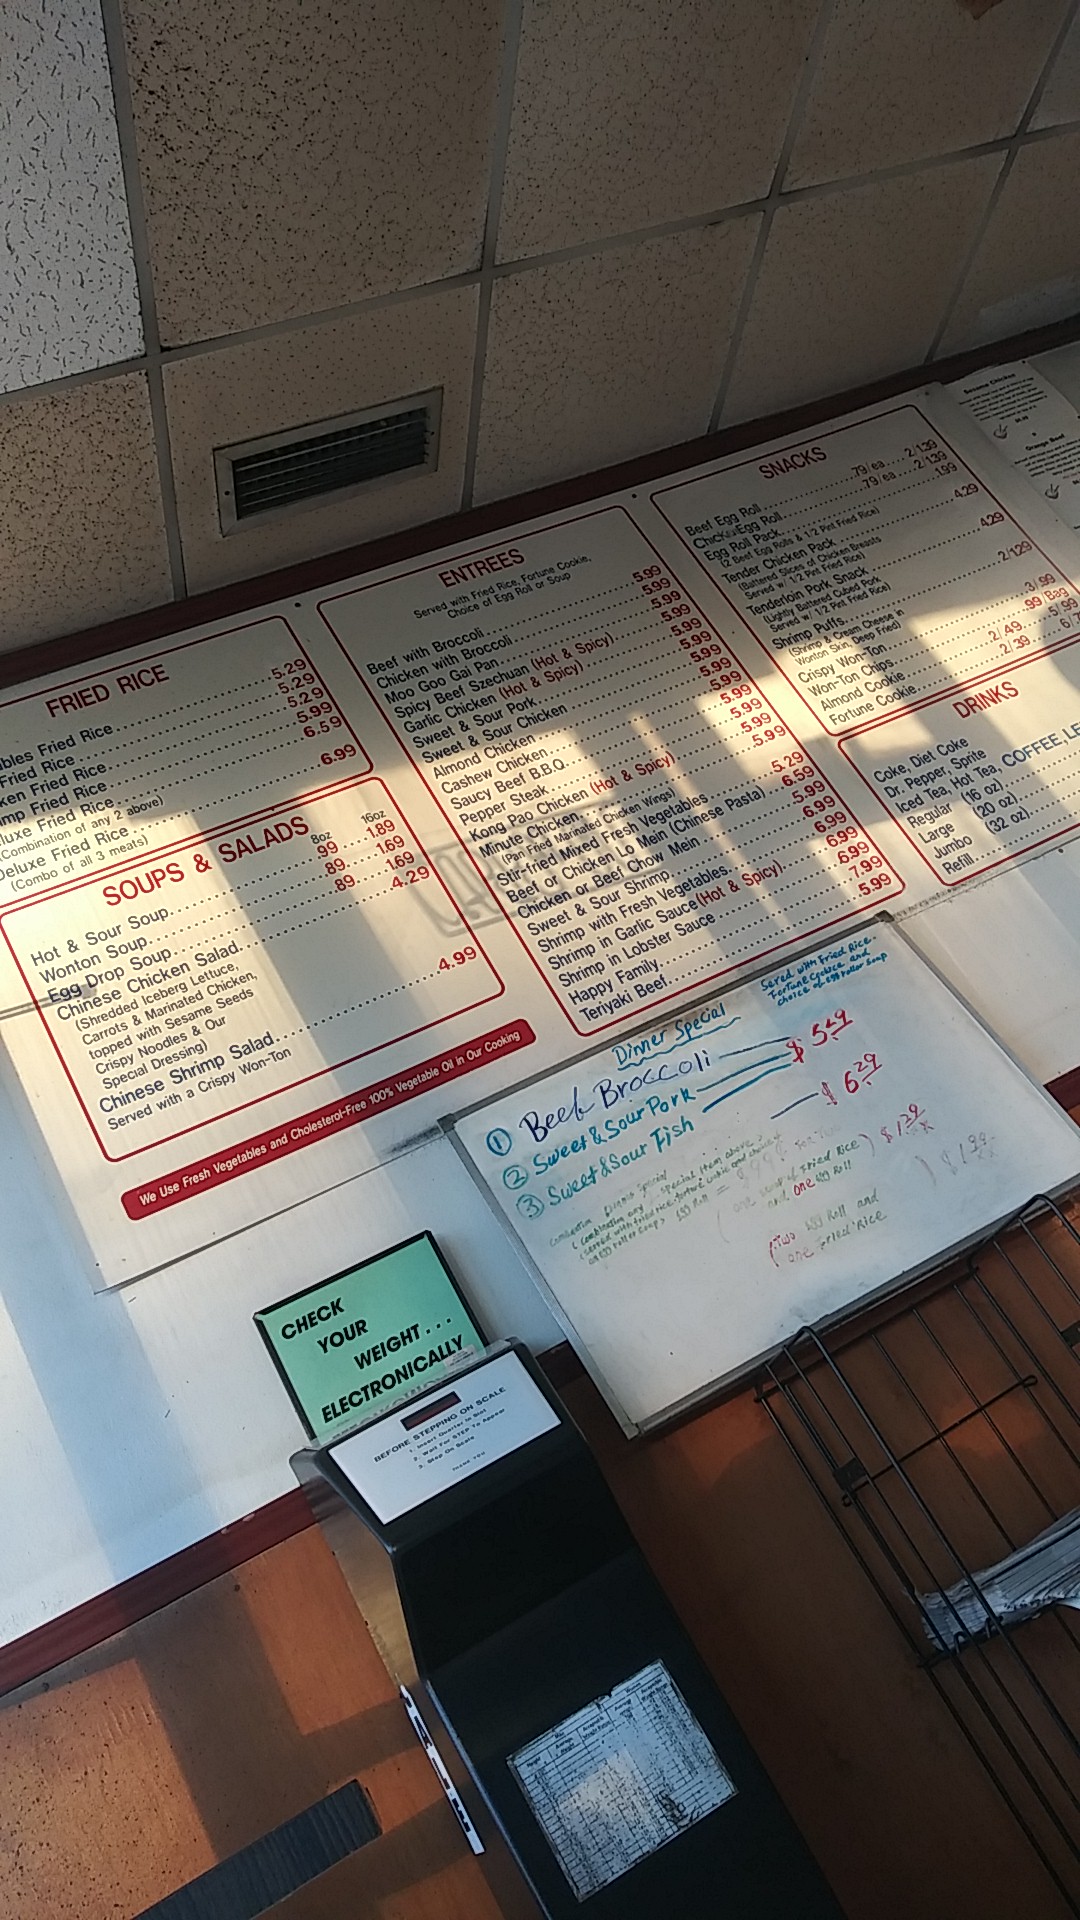 FRIED RICE
bles Fried Rice 5.29
Fried Rice 5.29
ken Fried Rice 5.29
mp Fried Rice 5.99
luxe Fried Rice 6.59
(Combination of any 2 above)
Deluxe Fried Rice 6.99
(Combo of all 3 meats)
SOUPS & SALADS
8oz 16oz
Hot & Sour Soup .99 1.89
Wonton Soup .89 1.69
Egg Drop Soup .89 1.69
Chinese Chicken Salad 4.29
(Shredded Iceberg Lettuce,
Carrots & Marinated Chicken,
topped with Sesame Seeds
Crispy Noodles & Our
Special Dressing)
Chinese Shrimp Salad 4.99
Served with a Crispy Won-Ton
We Use Fresh Vegetables and Cholesterol-Free 100% Vegetable Oil in Our Cooking
ENTREES
Served with Fried Rice, Fortune Cookie,
Choice of Egg Roll or Soup
Beef with Broccoli 5.99
Chicken with Broccoli 5.99
Moo Goo Gai Pan 5.99
Spicy Beef Szechuan (Hot & Spicy) 5.99
Garlic Chicken (Hot & Spicy) 5.99
Sweet & Sour Pork 5.99
Sweet & Sour Chicken 5.99
Almond Chicken 5.99
Cashew Chicken 5.99
Saucy Beef B.B.Q. 5.99
Pepper Steak 5.99
Kong Pao Chicken (Hot & Spicy) 5.99
Minute Chicken
(Pan Fried Marinated Chicken Wings)
Stir-fried Mixed Fresh Vegetables 5.29
Beef or Chicken Lo Mein (Chinese Pasta) 6.59
Chicken or Beef Chow Mein 5.99
Sweet & Sour Shrimp 6.99
Shrimp with Fresh Vegetables 6.99
Shrimp in Garlic Sauce (Hot & Spicy) 6.99
Shrimp in Lobster Sauce 6.99
Happy Family 7.99
Teriyaki Beef 5.99
SNACKS
Beef Egg Roll .79/ea 2/1.39
Chicken Egg Roll .79/ea 2/1.39
Egg Roll Pack 1.99
(2 Beef Egg Rolls & 1/2 Pint Fried Rice)
Tender Chicken Pack 4.29
(Battered Slices of Chicken Breasts
Served w/ 1/2 Pint Fried Rice)
Tenderloin Pork Snack 4.29
(Lightly Battered Cubed Pork
Served w/ 1/2 Pint Fried Rice)
Shrimp Puffs 2/1.29
(Shrimp & Cream Cheese in
Wonton Skin, Deep Fried)
Crispy Won-Ton 3/.99
Won-Ton Chips .99/Bag
Almond Cookie 2/.49 5/.99
Fortune Cookie 2/.39
DRINKS
Coke, Diet Coke
Dr. Pepper, Sprite
Iced Tea, Hot Tea, COFFEE, LE
Regular (16 oz)
Large (20 oz)
Jumbo (32 oz)
Refill
Sesame Chicken
Orange Beef
Dinner Special
Sered with Fried Rice
Fortune Cookie and
choice of egg roll or Soup
① Beef Broccoli
② Sweet & Sour Pork $5.49
③ Sweet & Sour Fish $6.29
special item above
(one soup of Fried Rice) $1.29
and one egg Roll
(Two egg Roll and
one Fried Rice) $1.99
CHECK
YOUR
WEIGHT...
ELECTRONICALLY
BEFORE STEPPING ON SCALE
1. Insert Quarter In Slot
2. Wait For STEP To Appear
3. Step On Scale
THANK YOU